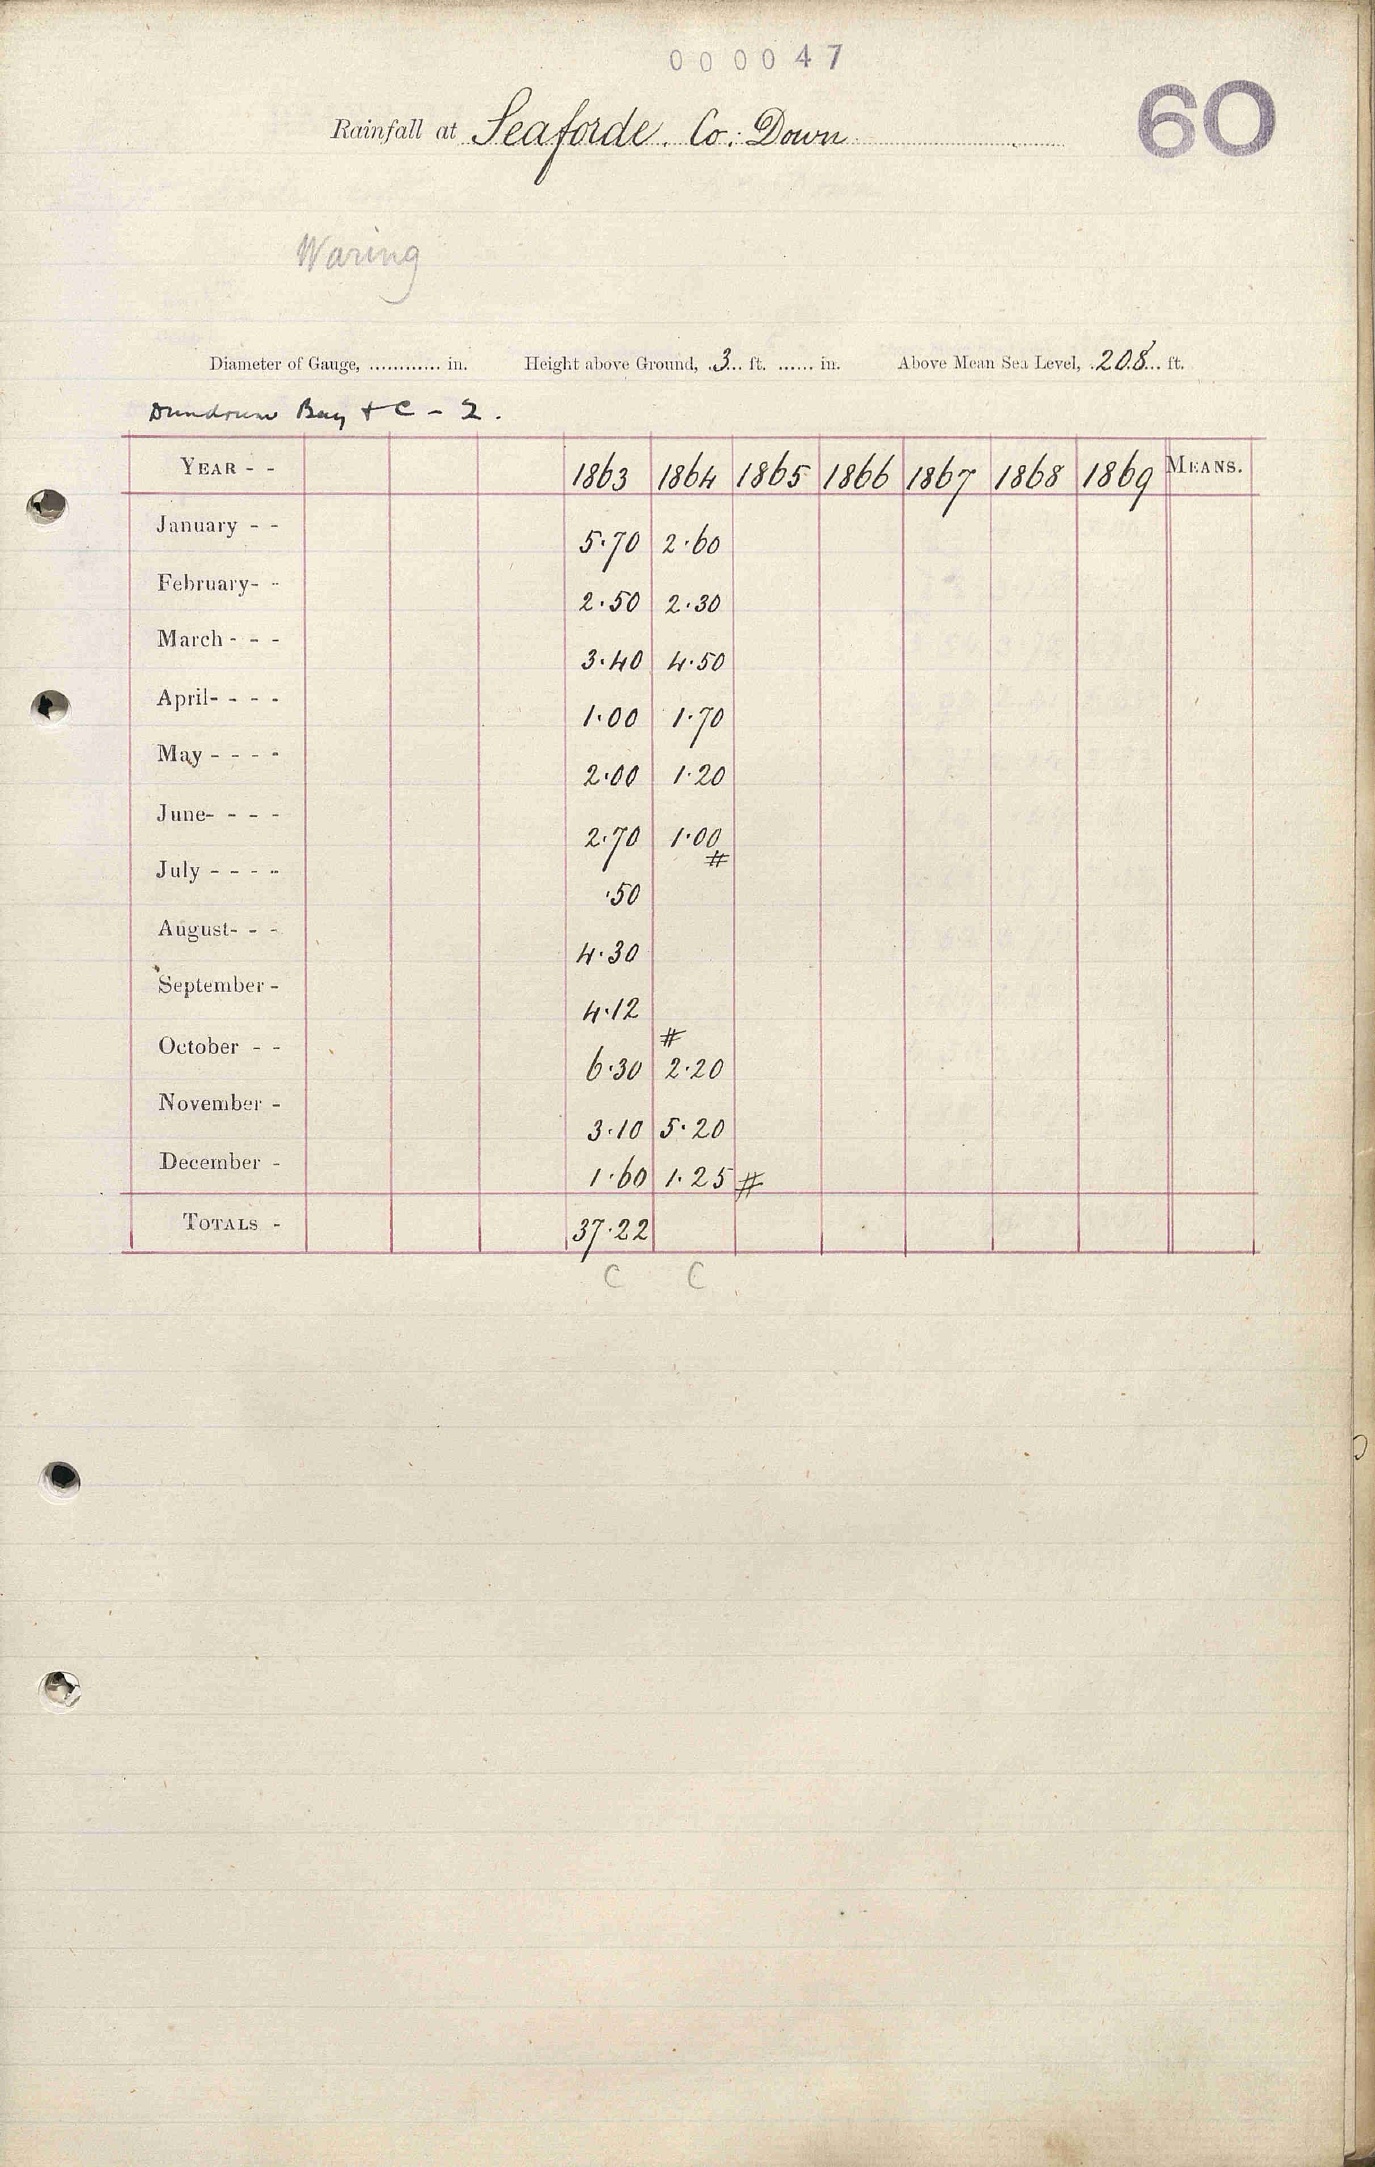 000047
60
Rainfall at Seaforde. Co: Down
Waring
Diameter of Gauge, ............ in. Height above Ground, 3 ft. ...... in. Above Mean Sea Level, 208 ft.
Dundrum Bay + C - 2.
YEAR - - 1863 1864 1865 1866 1867 1868 1869 MEANS.
January - - 5.70 2.60
February - - 2.50 2.30
March - - - 3.40 4.50
April - - - - 1.00 1.70
May - - - - 2.00 1.20
June - - - - 2.70 1.00 #
July - - - - .50
August - - - 4.30
September - 4.12
October - - 6.30 # 2.20
November - 3.10 5.20
December - 1.60 1.25 #
TOTALS - 37.22
C C